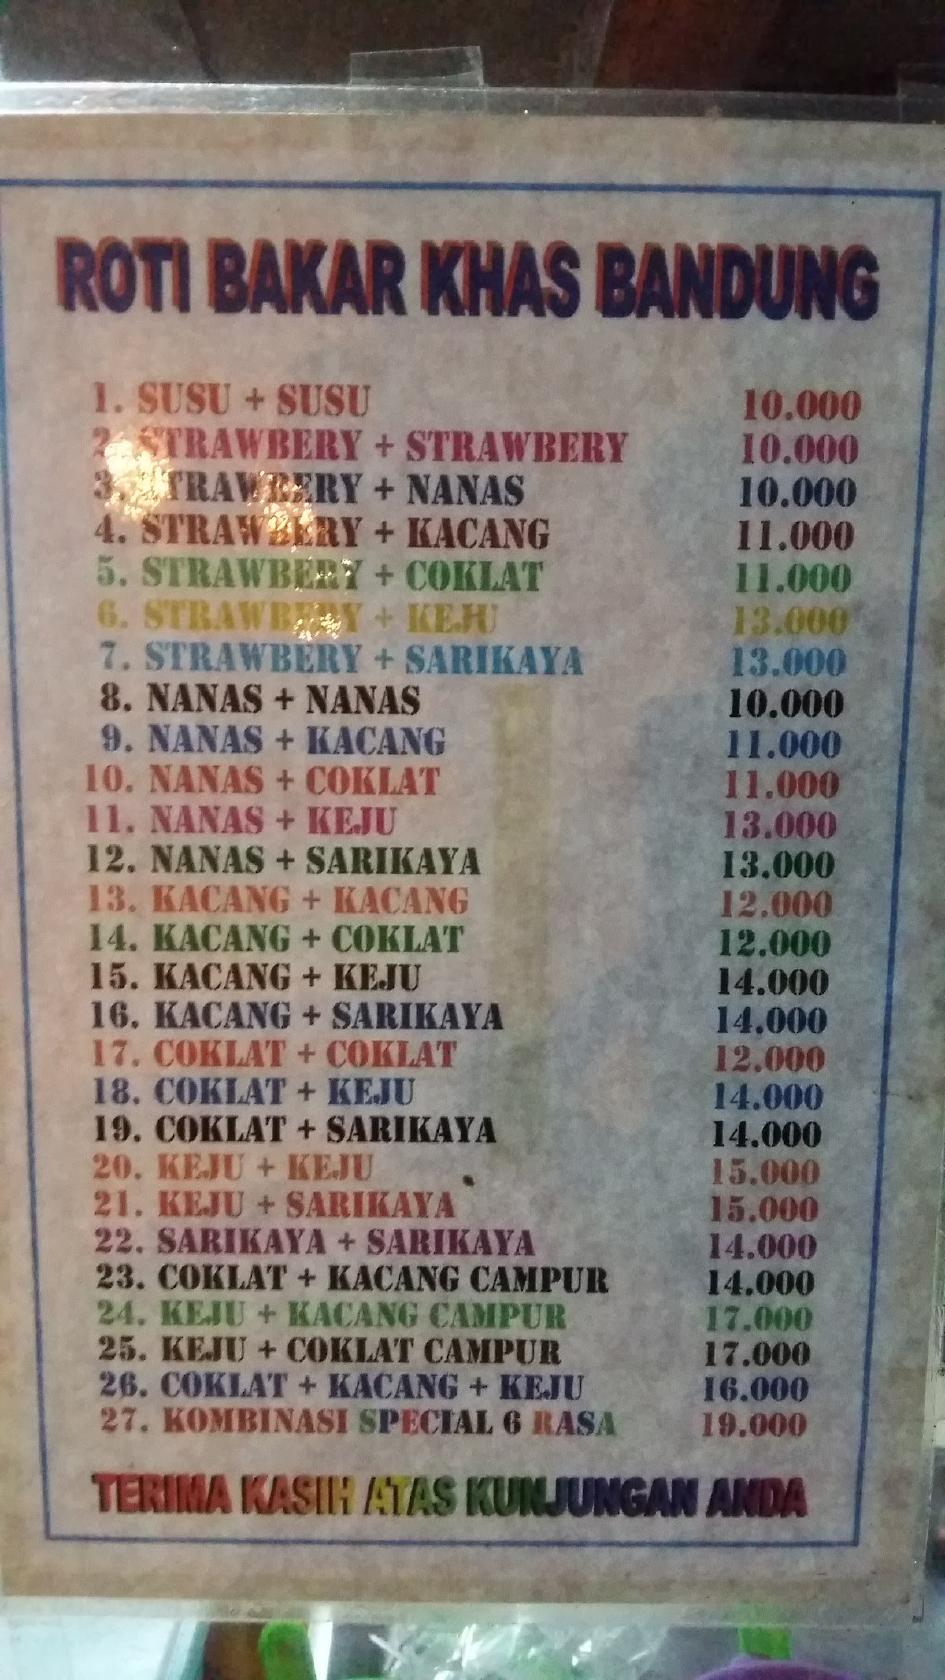 ROTI BAKAR KHAS BANDUNG
1. SUSU + SUSU 10.000
2. STRAWBERY + STRAWBERY 10.000
3. STRAWBERY + NANAS 10.000
4. STRAWBERY + KACANG 11.000
5. STRAWBERY + COKLAT 11.000
6. STRAWBERY + KEJU 13.000
7. STRAWBERY + SARIKAYA 13.000
8. NANAS + NANAS 10.000
9. NANAS + KACANG 11.000
10. NANAS + COKLAT 11.000
11. NANAS + KEJU 13.000
12. NANAS + SARIKAYA 13.000
13. KACANG + KACANG 12.000
14. KACANG + COKLAT 12.000
15. KACANG + KEJU 14.000
16. KACANG + SARIKAYA 14.000
17. COKLAT + COKLAT 12.000
18. COKLAT + KEJU 14.000
19. COKLAT + SARIKAYA 14.000
20. KEJU + KEJU 15.000
21. KEJU + SARIKAYA 15.000
22. SARIKAYA + SARIKAYA 14.000
23. COKLAT + KACANG CAMPUR 14.000
24. KEJU + KACANG CAMPUR 17.000
25. KEJU + COKLAT CAMPUR 17.000
26. COKLAT + KACANG + KEJU 16.000
27. KOMBINASI SPECIAL 6 RASA 19.000
TERIMA KASIH ATAS KUNJUNGAN ANDA